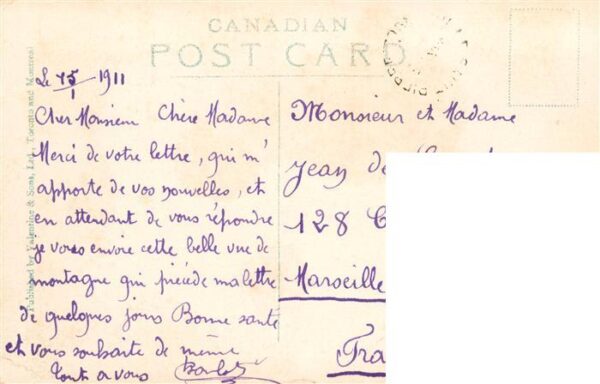 CANADIAN
POST CARD
Published by Valentine & Sons, Ltd., Toronto and Montreal
Le 15/1 1911
Cher Monsieur Chère Madame
Merci de votre lettre, qui m'
apporte de vos nouvelles, et
en attendant de vous répondre
je vous envoie cette belle vue de
montagne qui précède ma lettre
de quelques jours Bonne santé
et vous souhaite de même
Tout a vous
Monsieur et Madame
Jean de
128 C
Marseille
Fra